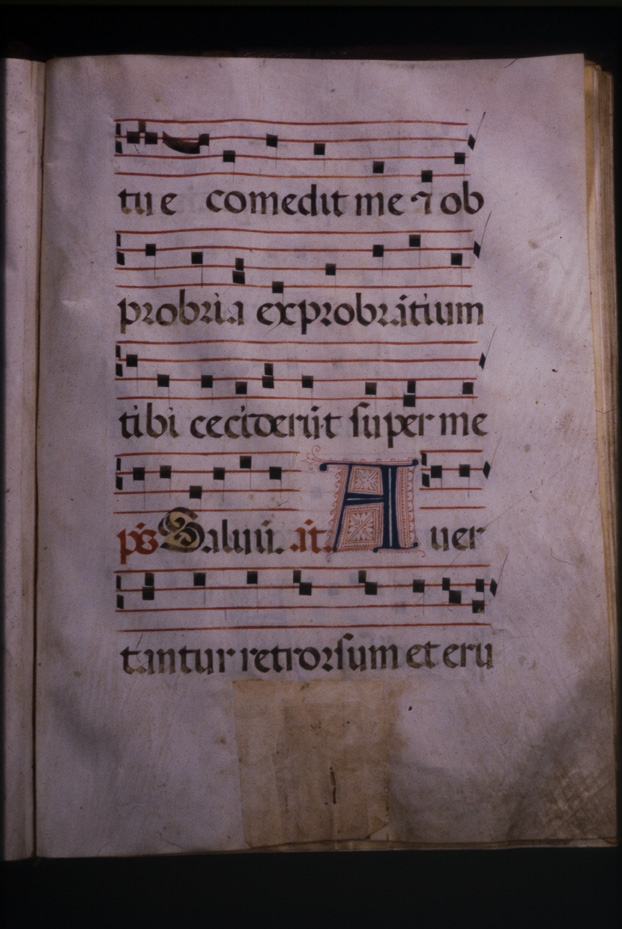 tue comedit me ⁊ ob
probria exprobrãtium
tibi cecideru̅t super me
ps̅ Saluu̅. an̅t. A uer
tantur retrorsum et eru